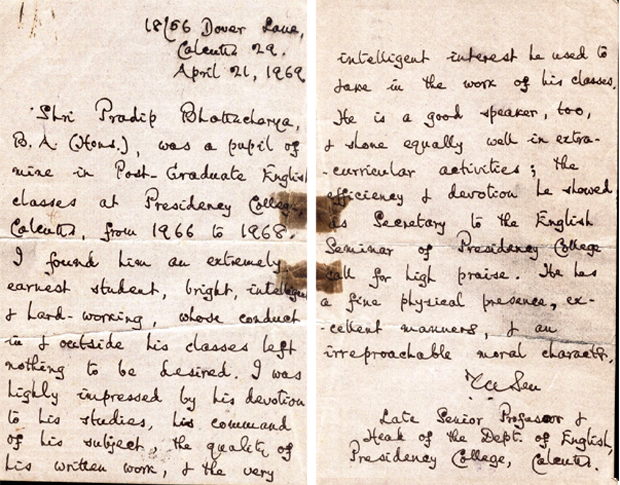 18/56 Dover Lane,
Calcutta 29.
April 21, 1969
Shri Pradip Bhattacharya,
B.A. (Hons.), was a pupil of
mine in Post-Graduate English
classes at Presidency College
Calcutta, from 1966 to 1968.
I found him an extremely
earnest student, bright, intelligent
& hard-working, whose conduct
in & outside his classes left
nothing to be desired. I was
highly impressed by his devotion
to his studies, his command
of his subject, the quality of
his written work, & the very
intelligent interest he used to
take in the work of his classes.
He is a good speaker, too,
& shone equally well in extra-
-curricular activities; the
efficiency & devotion he showed
as Secretary to the English
Seminar of Presidency College
call for high praise. He has
a fine physical presence, ex-
-cellent manners, & an
irreproachable moral character.
Sen
Late Senior Professor &
Head of the Dept. of English,
Presidency College, Calcutta.